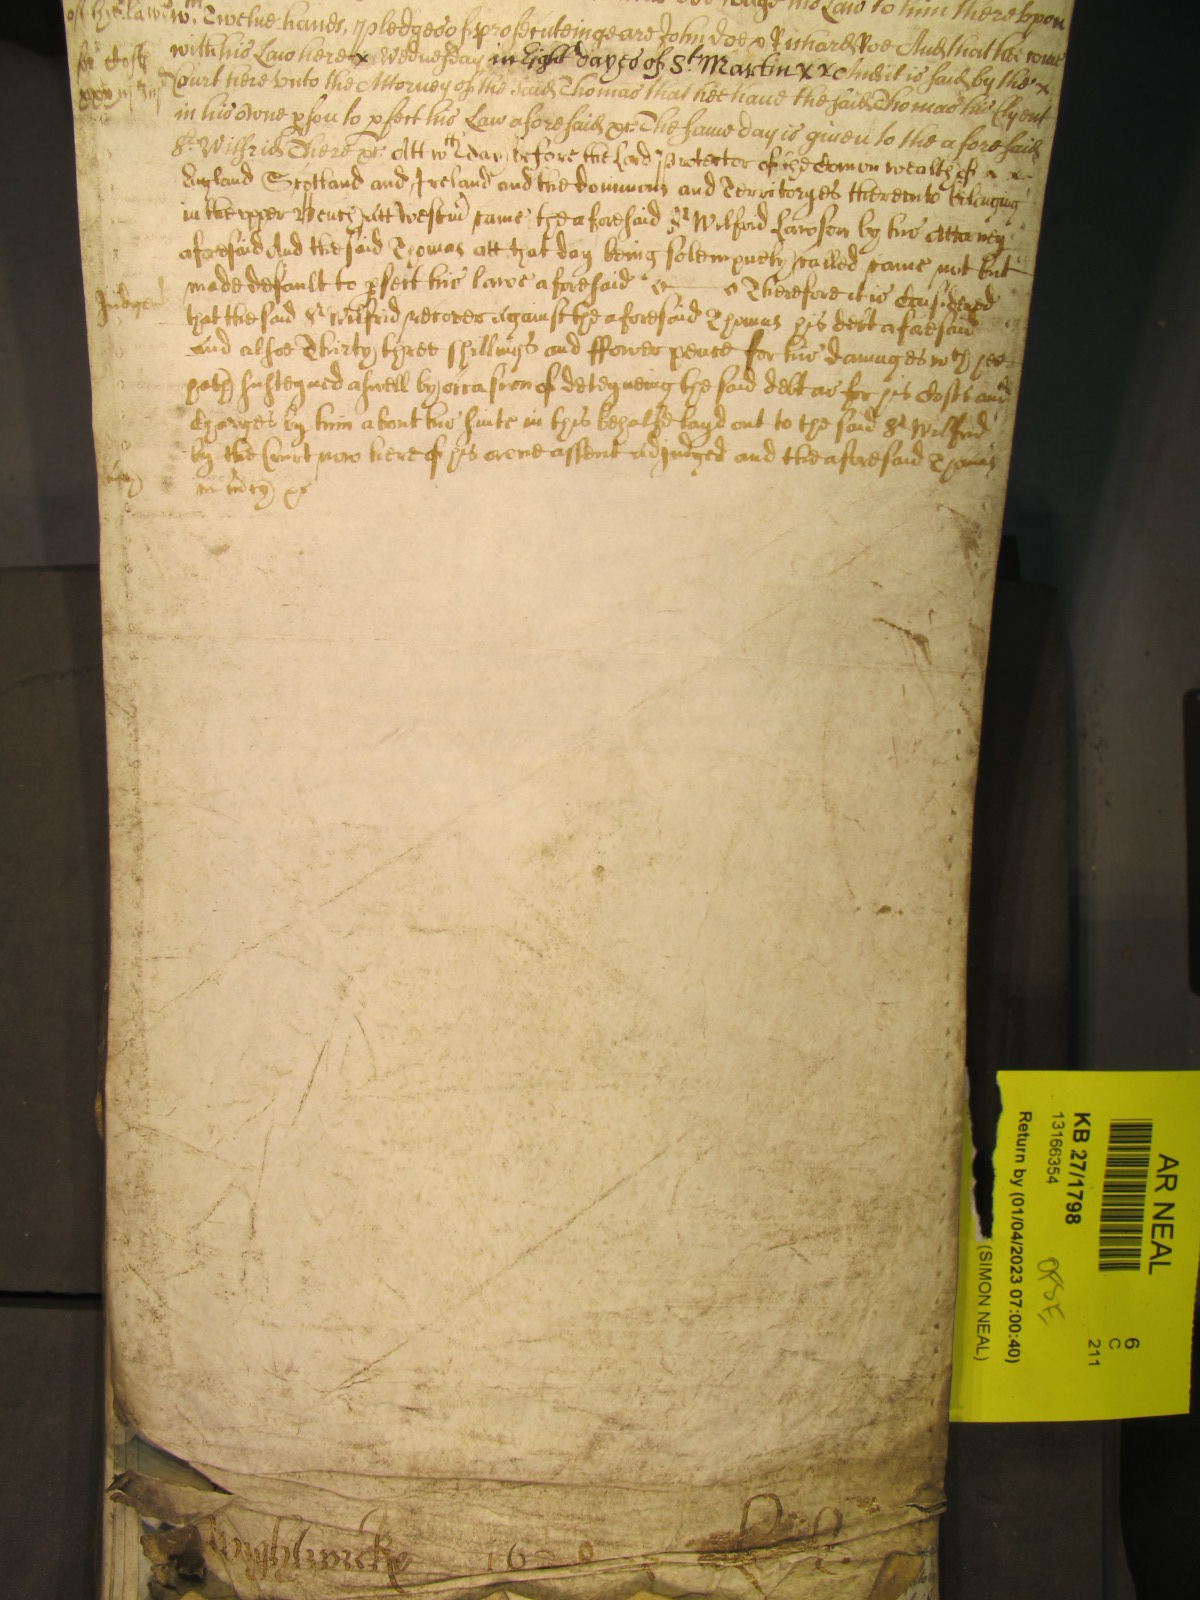 his Law to him thereupon
w.th Twelue hands, pledges of prosecuteinge are John doe & Richard Roe And that hee come
with his Law here x Wednesday in Eight dayes of St. Martin x x And it is said by the x
Court here vnto the Attorney of the said Thomas that hee haue the said Thomas his Clyent
in his owne pson to pfect his Law aforesaid &c The same day is giuen to the aforesaid
Sr. Wilfrid There &c Att wch day before the Lord Protector of the Comon wealth of x x
England Scotland and Ireland and the dominions and Territoryes thereunto belonging
in the vpper Bench Att Westm came the aforesaid Sr Wilfrid Lawson by his Attorney
aforesaid And the said Thomas att that day being solempnely called came not but
made default to pfect his lawe aforesaid Therefore it is Considered
that the said Sr Wilfrid recover Against the aforesaid Thomas his debt aforesaid
And alsoe Thirty three shillings and ffower pence for his damages wch hee
hath susteyned aswell by occasion of deteyneing the said debt as for his Costs and
Charges by him about his suite in this behalfe layd out to the said Sr Wilfrid
by the Court now here of his owne assent adjudged and the aforesaid Thomas
in mcy &c
of his law
for Costs
Judgemt
mcy
AR NEAL
6
C
211
KB 27/1798
13166354
Return by (01/04/2023 07:00:40)
(SIMON NEAL)